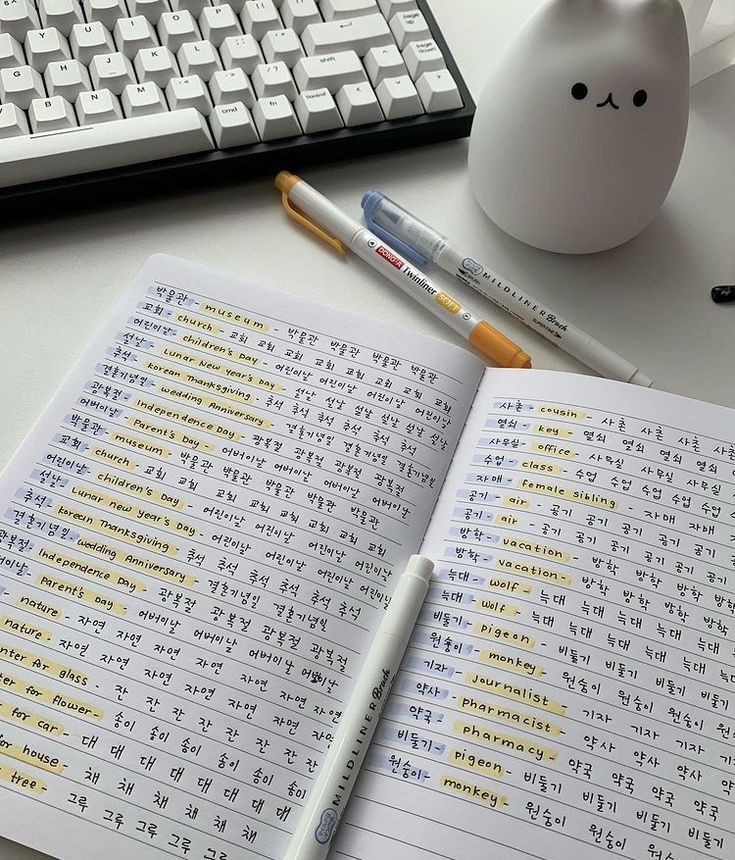 page up
Y U I O P
page down
G H J K L shift
B N M cmd fn control
DONG-A Twinliner SOFT
MILDLINER Brush SUPER FINE
박물관 - museum - 박물관 박물관 박물관 박물관
교회 - church - 교회 교회 교회 교회 교회 교회
어린이날 - children's Day - 어린이날 어린이날 어린이날 어린이날
설날 - Lunar New year's Day - 설날 설날 설날 설날 설날 설날
추석 - Korean Thanksgiving - 추석 추석 추석 추석 추석 추석
결혼기념일 - wedding Anniversary - 결혼기념일 결혼기념일 결혼기념일
광복절 - Independence Day - 광복절 광복절 광복절 광복절
어버이날 - Parent's Day - 어버이날 어버이날 어버이날 어버이날
박물관 - museum - 박물관 박물관 박물관 박물관
교회 - church - 교회 교회 교회 교회 교회 교회
어린이날 - children's Day - 어린이날 어린이날 어린이날 어린이날
설날 - Lunar New year's Day - 설날 설날 설날 설날 설날
추석 - korean Thanksgiving - 추석 추석 추석 추석 추석
결혼기념일 - wedding Anniversary - 결혼기념일 결혼기념일
광복절 - Independence Day - 광복절 광복절 광복절 광복절
어버이날 - Parent's Day - 어버이날 어버이날 어버이날 어버이날
- nature - 자연 자연 자연 자연 자연 자연
nature - 자연 자연 자연 자연 자연 자연
for glass - 잔 잔 잔 잔 잔 잔 잔
for flower - 송이 송이 송이 송이 송이 송이
for car - 대 대 대 대 대 대 대 대
for house - 채 채 채 채 채 채
tree - 그루 그루 그루 그루 그루
사촌 - cousin - 사촌 사촌 사촌 사촌
열쇠 - key - 열쇠 열쇠 열쇠 열쇠
사무실 - office - 사무실 사무실 사무실
수업 - class - 수업 수업 수업 수업
자매 - female sibling - 자매 자매
공기 - air - 공기 공기 공기 공기
공기 - air - 공기 공기 공기 공기
방학 - vacation - 방학 방학 방학 방학
방학 - vacation - 방학 방학 방학 방학
늑대 - wolf - 늑대 늑대 늑대 늑대
늑대 - wolf - 늑대 늑대 늑대 늑대
비둘기 - pigeon - 비둘기 비둘기 비둘기
원숭이 - monkey - 원숭이 원숭이 원숭이
기자 - journalist - 기자 기자 기자
약사 - pharmacist - 약사 약사 약사 약사
약국 - pharmacy - 약국 약국 약국 약국
비둘기 - pigeon - 비둘기 비둘기 비둘기
원숭이 - monkey - 원숭이 원숭이 원숭이
MILDLINER Brush